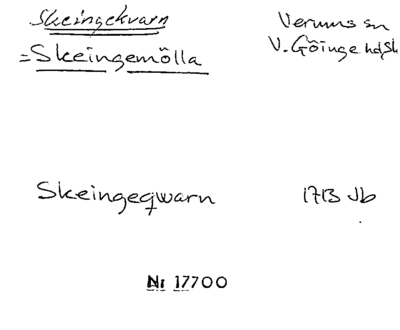 Skeingekvarn
Verums sn
=Skeingemölla
V. Göinge hd, Sk
Skeingeqwarn 1713 Jb
Nr 17700